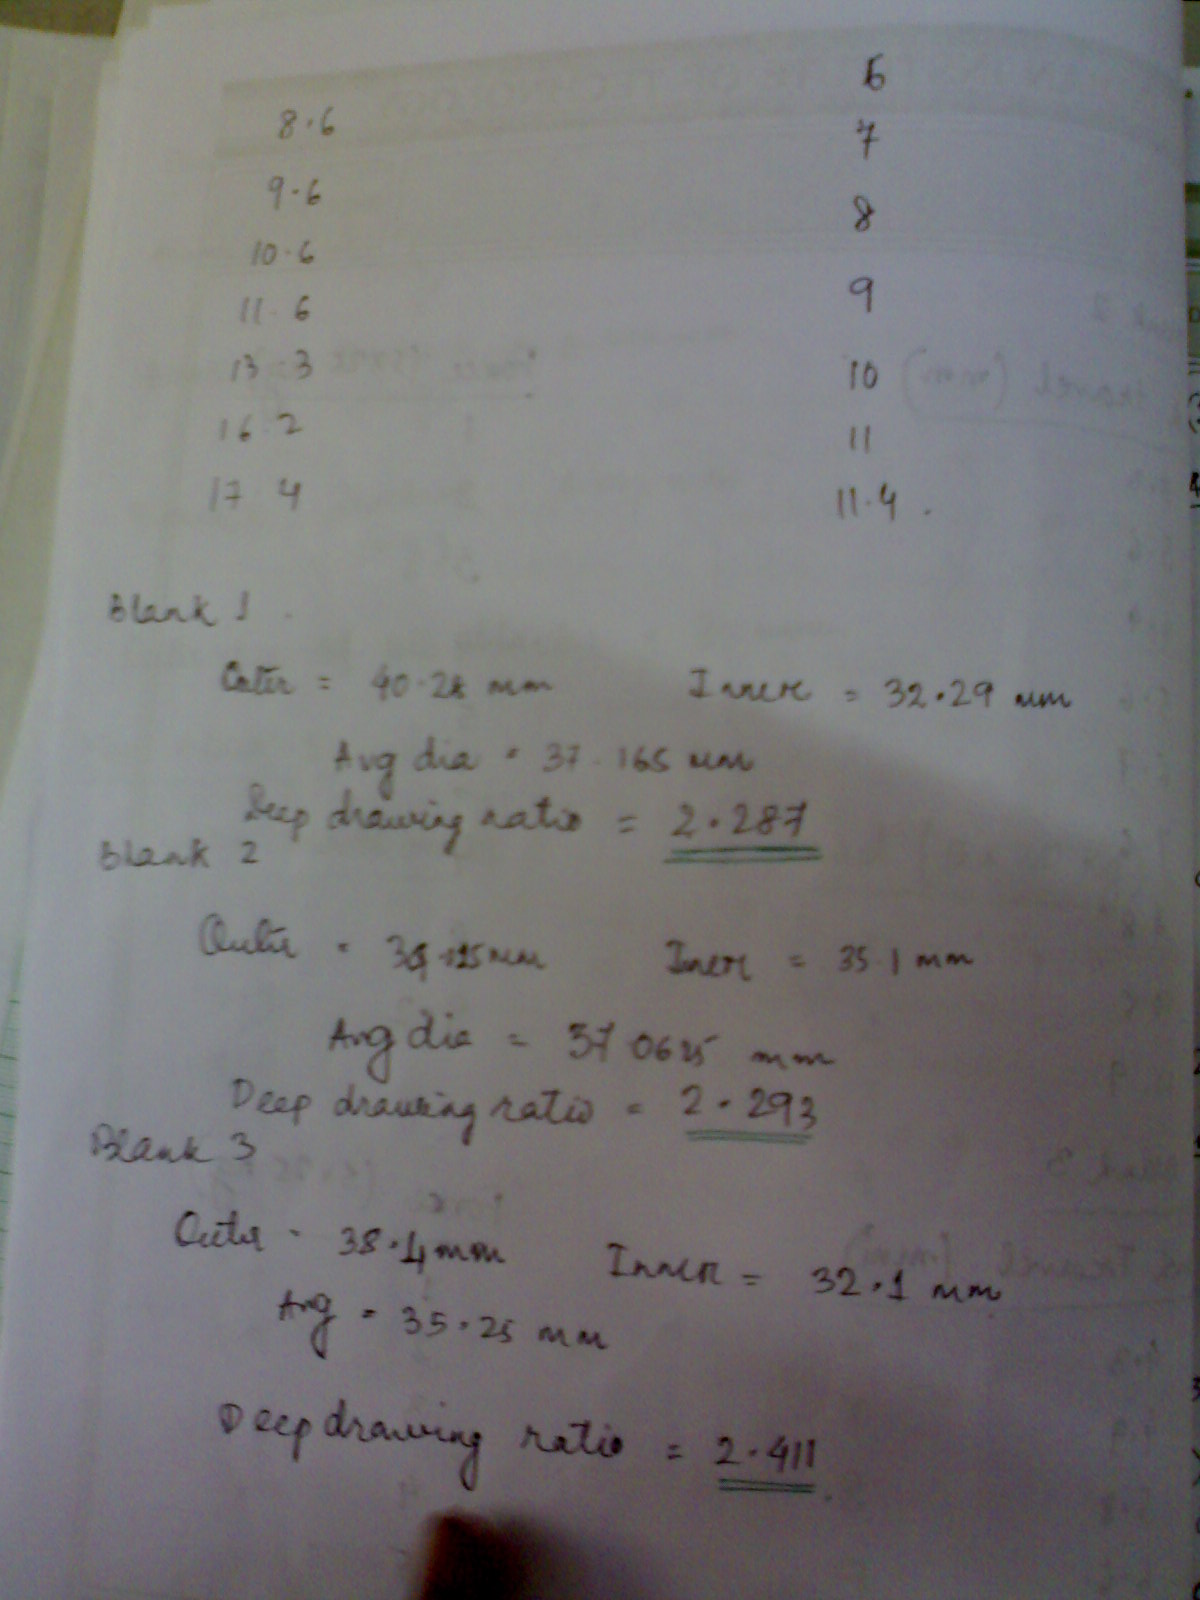 6
8.6
7
9.6
8
10.6
9
11.6
13.3
10
16.2
11
17 4
11.4.
Blank 1.
Outer = 40.28 mm Inner = 32.29 mm
Avg dia = 37.165 mm
Deep drawing ratio = 2.287
Blank 2
Outer = mm Inner = 35.1 mm
Avg dia = 37 0625 mm
Deep drawing ratio = 2.293
Blank 3
Outer - 38.4 mm Inner = 32.1 mm
Avg = 35.25 mm
Deep drawing ratio = 2.411